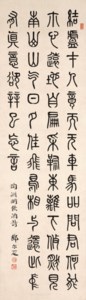 結廬在人境而無車馬喧問君何能
爾心遠地自偏采菊東籬下悠然見
南山山气日夕佳飛鳥相與還此中
有真意欲辨已忘言
陶淵明飲酒詩